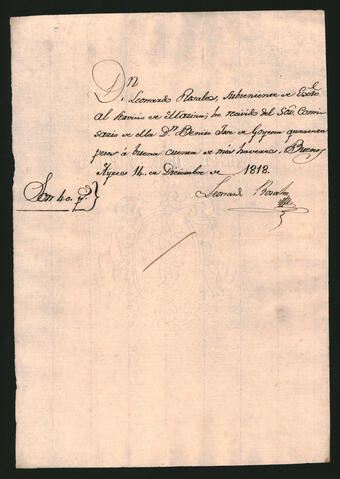 Dn.
Leonardo Rosales, Subteniente de Exto.
al servicio de Marina; he recivido del Sor. Comi-
sario de ella Dn. Benito Jose de Goyena quarenta
pesos á buena cuenta de mis haveres. Buenos
Ayres 14 de Diciembre de 1818.
Son 40 ps.
Leonardo Rosales